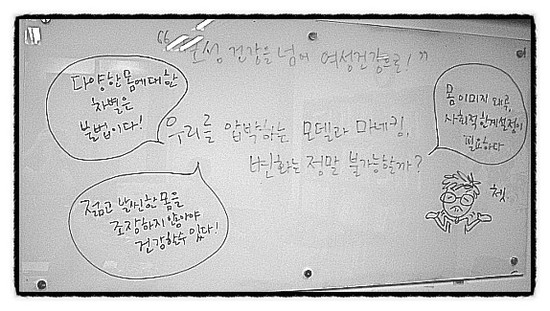 "모성 건강을 넘어 여성건강으로!"
다양한 몸에 대한
차별은
불법이다!
우리를 압박하는 모델과 마네킹,
변화는 정말 불가능할까?
몸 이미지 왜곡,
사회적 한계설정이
필요하다
젊고 날씬한 몸을
조장하지 않아야
건강할수 있다!
쳇